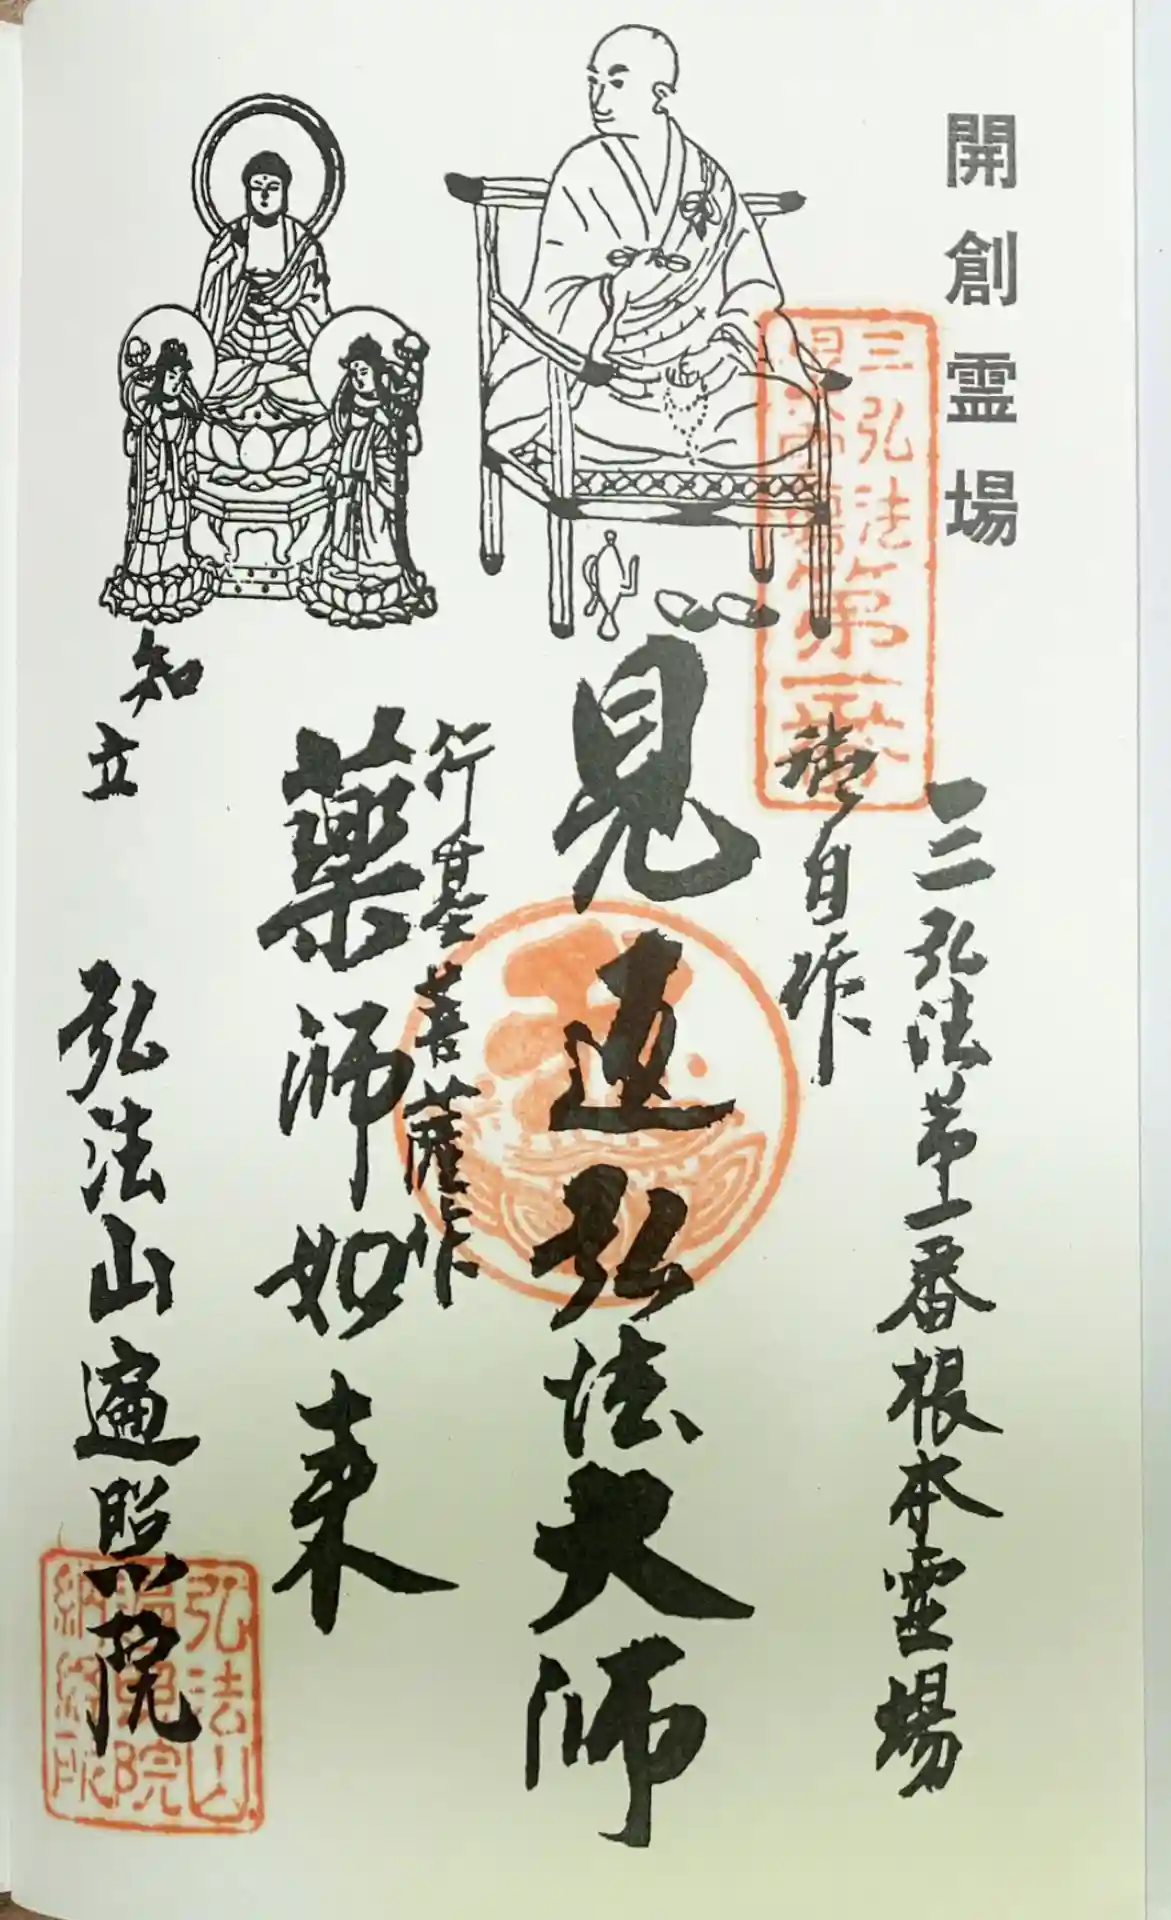 開創霊場
三弘法第一番根本霊場
三弘法
第一番
御自作
見返弘法大師
行基菩薩作
薬師如来
知立
弘法山遍照院
弘法山
遍照院
納経所